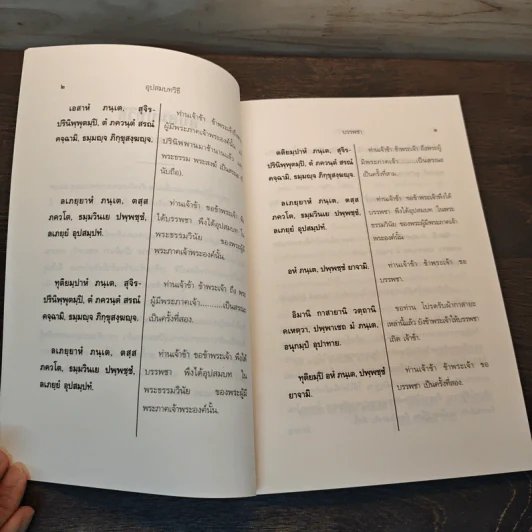 ๒
อุปสมบทวิธี
เอสาหํ ภนฺเต, สุจิร-
ปรินิพฺพุตมฺปิ, ตํ ภควนฺตํ สรณํ
คจฺฉามิ, ธมฺมญฺจ ภิกฺขุสงฺฆญฺจ,
ท่านเจ้าข้า ข้าพระเจ้าถึง
ผู้มีพระภาคเจ้าพระองค์
ปรินิพพานมาช้านานแล้ว
พระธรรม พระสงฆ์ เป็นสรณะ
นับถือ).
ลเภยฺยาหํ ภนฺเต, ตสฺส
ภควโต, ธมฺมวินเย ปพฺพชฺชํ,
ลเภยฺยํ อุปสมฺปทํ.
ท่านเจ้าข้า ขอข้าพระเจ้า
ได้บรรพชา พึงได้อุปสมบท
พระธรรมวินัย ของพระผู้มี
พระภาคเจ้าพระองค์นั้น.
ทุติยมฺปาหํ ภนฺเต, สุจิร-
ปรินิพฺพุตมฺปิ, ตํ ภควนฺตํ สรณํ
คจฺฉามิ, ธมฺมญฺจ ภิกฺขุสงฺฆญฺจ,
ท่านเจ้าข้า ข้าพระเจ้า ถึง พระ
ผู้มีพระภาคเจ้า..........เป็นสรณะ
เป็นครั้งที่สอง.
ลเภยฺยาหํ ภนฺเต, ตสฺส
ภควโต, ธมฺมวินเย ปพฺพชฺชํ,
ลเภยฺยํ อุปสมฺปทํ.
ท่านเจ้าข้า ขอข้าพระเจ้า พึงได้
บรรพชา พึงได้อุปสมบท ใน
พระธรรมวินัย ของพระผู้มี
พระภาคเจ้าพระองค์นั้น.
บรรพชา
๓
ตติยมฺปาหํ ภนฺเต, สุจิร-
ปรินิพฺพุตมฺปิ, ตํ ภควนฺตํ สรณํ
คจฺฉามิ, ธมฺมญฺจ ภิกฺขุสงฺฆญฺจ,
ท่านเจ้าข้า ข้าพระเจ้า ถึงพระ
ผู้มีพระภาคเจ้า เป็นสรณะ
เป็นครั้งที่สาม.
ลเภยฺยาหํ ภนฺเต, ตสฺส
ภควโต, ธมฺมวินเย ปพฺพชฺชํ,
ลเภยฺยํ อุปสมฺปทํ.
ท่านเจ้าข้า ขอข้าพระเจ้าพึงได้
บรรพชา พึงได้อุปสมบท ในพระ
ธรรมวินัย ของพระผู้มีพระภาคเจ้า
พระองค์นั้น.
อหํ ภนฺเต, ปพฺพชฺชํ ยาจามิ.
ท่านเจ้าข้า ข้าพระเจ้า ขอ
บรรพชา.
อิมานิ กาสายานิ วตฺถานิ
คเหตฺวา, ปพฺพาเชถ มํ ภนฺเต,
อนุกมฺปํ อุปาทาย.
ขอท่าน โปรดรับผ้ากาสายะ
เหล่านี้แล้ว ยังข้าพระเจ้าให้บรรพชา
เถิด เจ้าข้า.
ทุติยมฺปิ อหํ ภนฺเต, ปพฺพชฺชํ
ยาจามิ.
ท่านเจ้าข้า ข้าพระเจ้า ขอ
บรรพชา เป็นครั้งที่สอง.